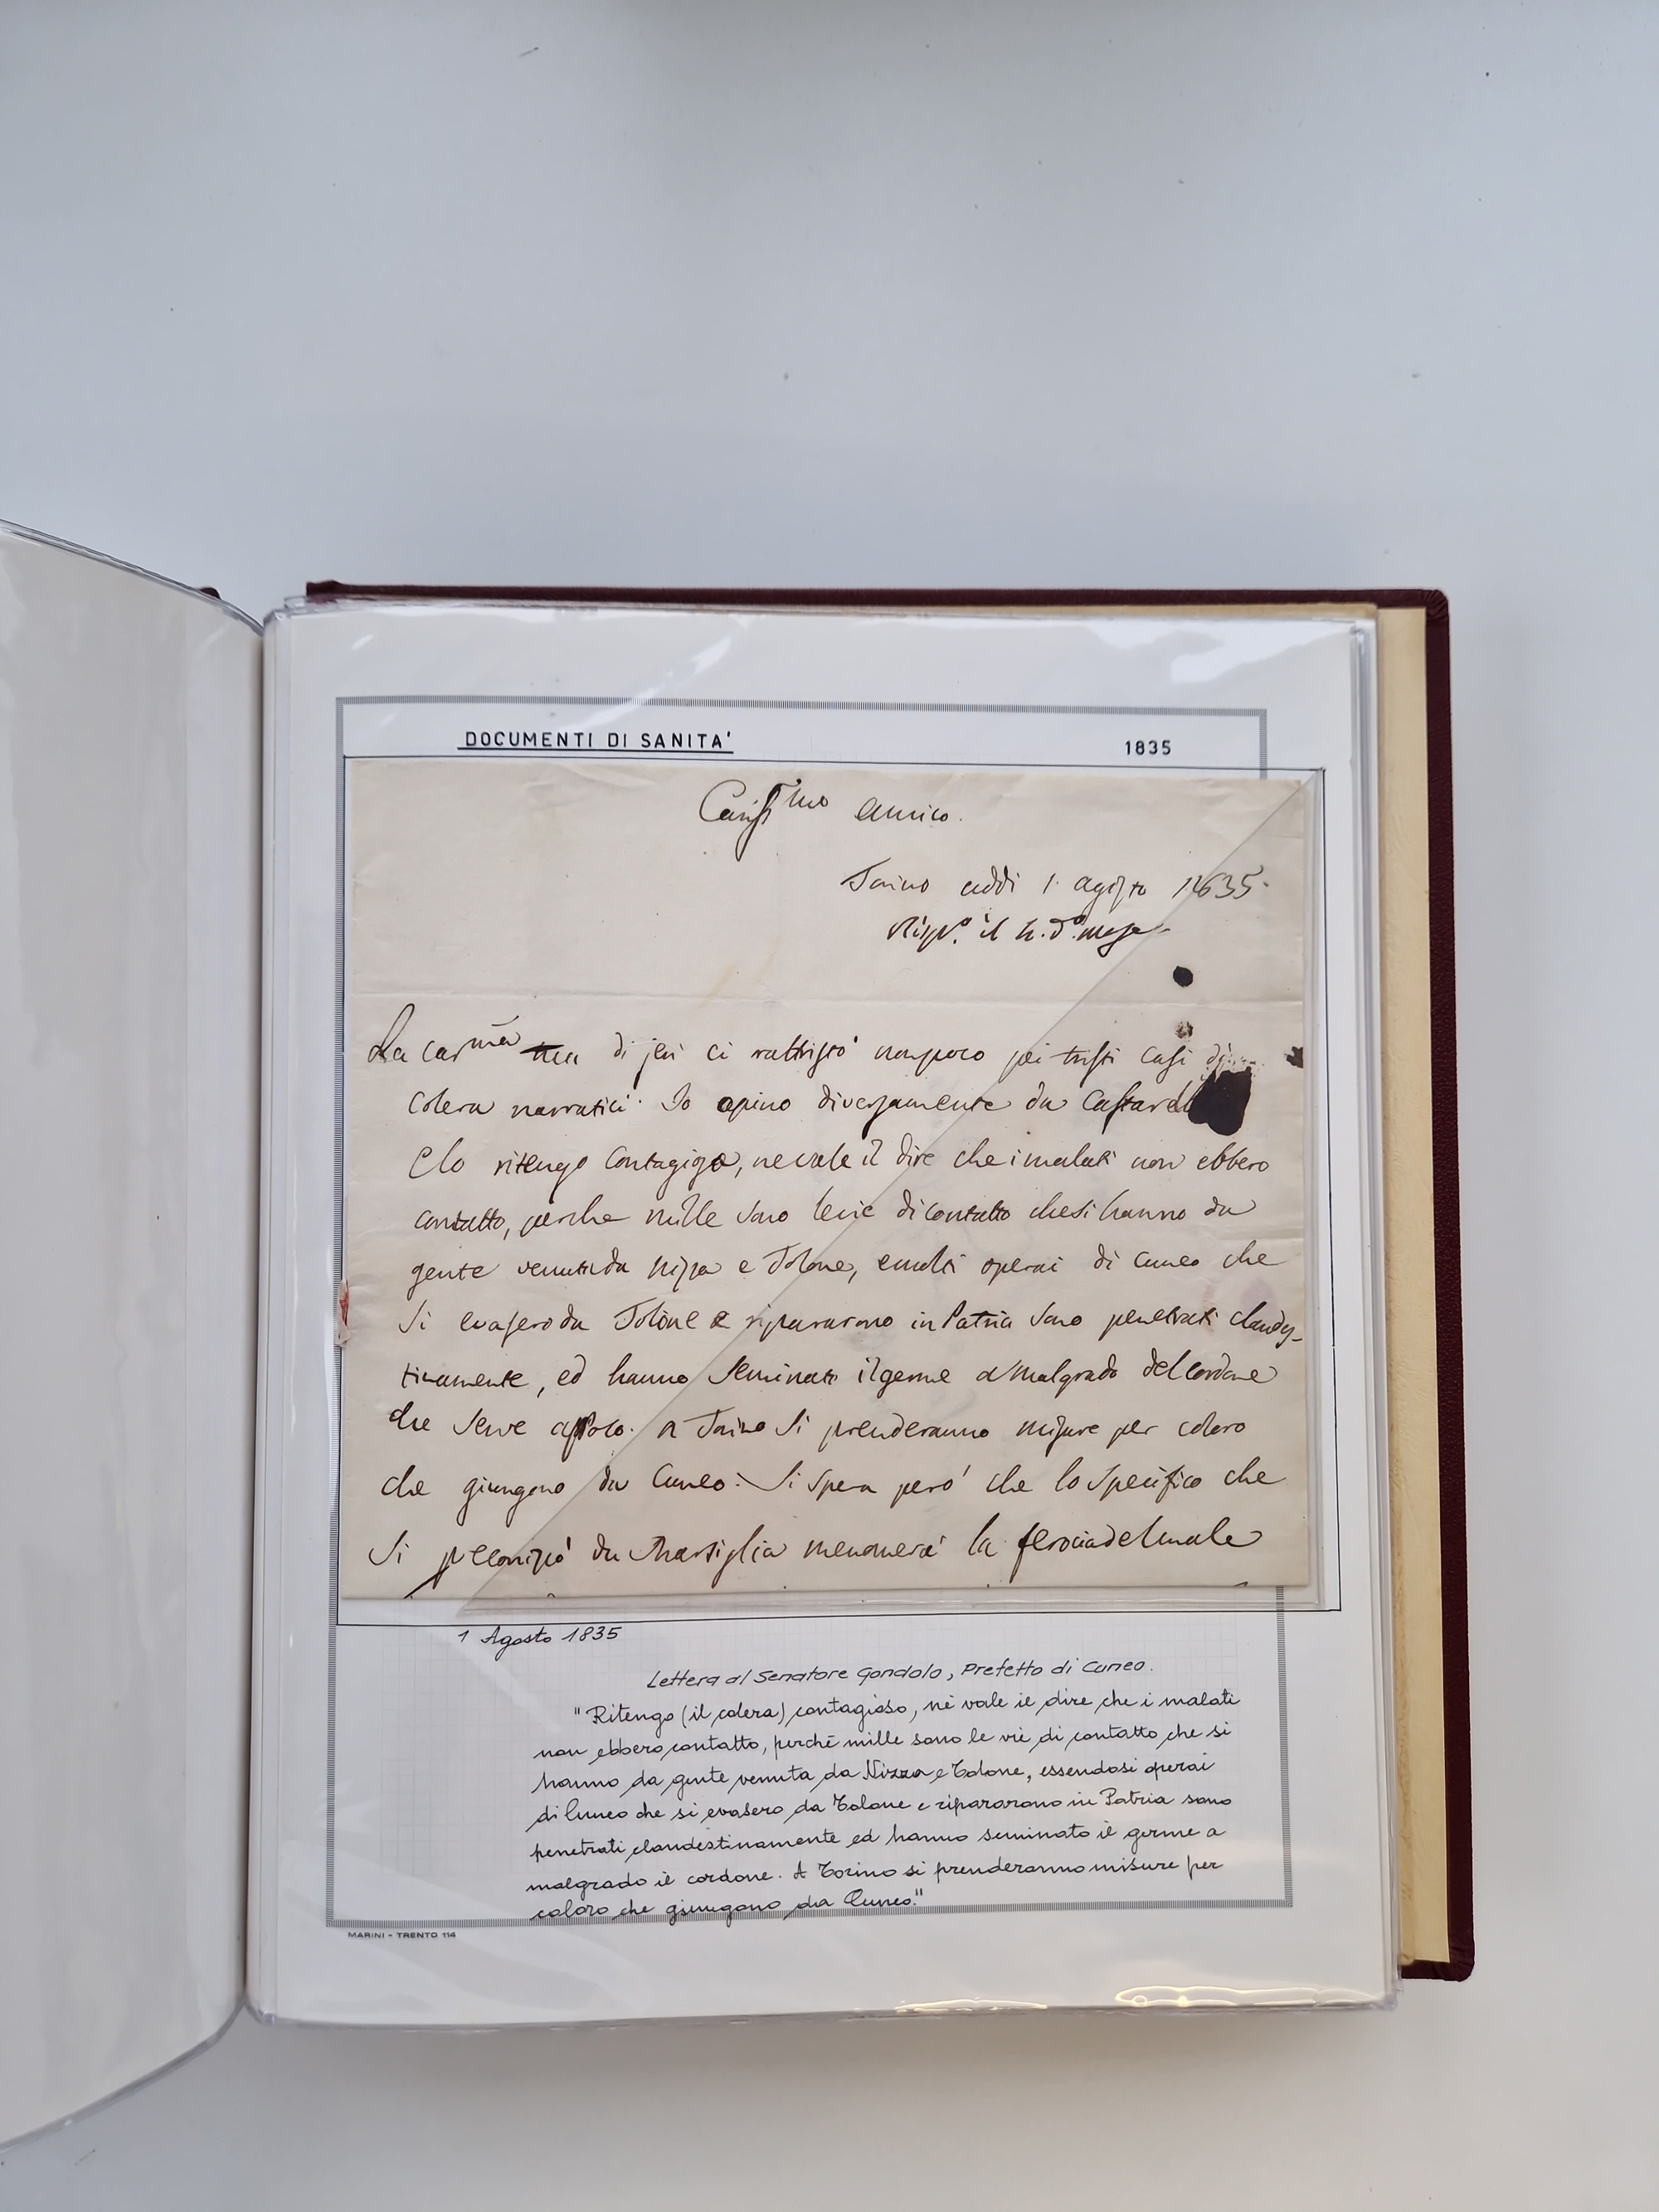 DOCUMENTI DI SANITA'
1835
Cariss.mo Amico.
Torino addi 1. agosto 1835.
Risp.o il d.o mese
La car.ma tua di jeri ci rattristò non poco pei tristi casi di
Colera narratici. Io opino diversamente da
e lo ritengo Contagioso, ne vale il dire che i malati non ebbero
contatto, perche mille sono le vie di contatto che si hanno da
gente venuta da Nizza e Tolone, e molti operai di Cuneo che
si evasero da Tolone e ripararono in Patria sono penetrati clandes-
tinamente, ed hanno seminato il germe a malgrado del Cordone
che serve a solo. A Torino si prenderanno misure per coloro
che giungono da Cuneo. Si spera però che lo specifico che
si preconizò da Marsiglia menomerà la ferocia del male
1 Agosto 1835
Lettera al Senatore Gondolo, Prefetto di Cuneo.
"Ritengo (il colera) contagioso, nè vale il dire che i malati
non ebbero contatto, perché mille sono le vie di contatto che si
hanno da gente venuta da Nizza e Tolone, essendosi operai
di Cuneo che si evasero da Tolone e ripararono in Patria sono
penetrati clandestinamente ed hanno seminato il germe a
malgrado il cordone. A Torino si prenderanno misure per
coloro che giungono da Cuneo."
MARINI - TRENTO 114